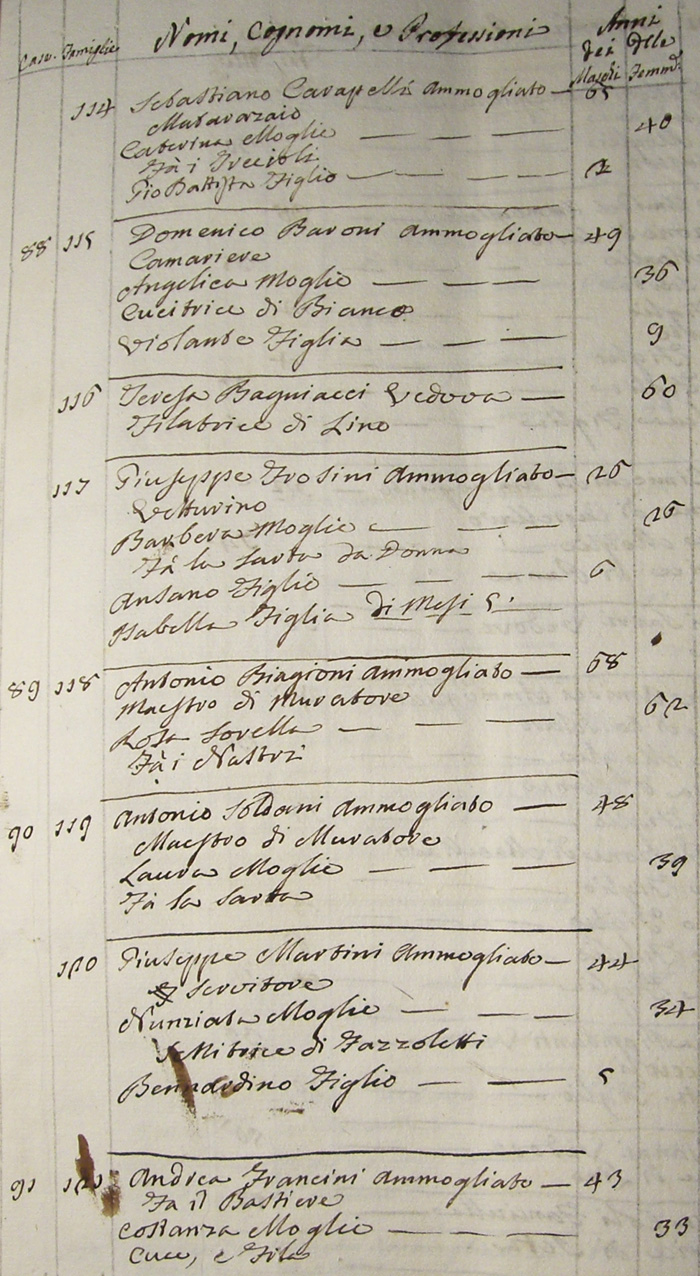 Case. Famiglie Nomi, Cognomi, e Professioni Anni
dei delle
Maschi Femm.
114 Sebastiano Carapelli Ammogliato — 65
Caterina Moglie — — — 40
Fà i Treccioli
Gio Battista Figlio — — — 2
88 115 Domenico Baroni Ammogliato — 49
Camariere
Angelica Moglie — — — 36
Cucitrice di Bianco
Violante Figlia — — — 9
116 Teresa Bagniacci Vedova — 60
Filatrice di Lino
117 Giuseppe Frosini Ammogliato — 26
Vetturino
Barbera Moglie — — — 26
Fà la Sarta da Donna
Ansano Figlio — — — 6
Isabella Figlia Di Mesi 5.
89 118 Antonio Biagioni Ammogliato — 68
Maestro di Muratore
Rosa Sorella — — — 62
Fà i Nastri
90 119 Antonio Soldani Ammogliato — 48
Maestro di Muratore
Laura Moglie — — — 39
Fà la Sarta
120 Giuseppe Martini Ammogliato — 44
Servitore
Nunziata Moglie — — — 34
di Fazzoletti
Bernardino Figlio — — — 5
91 121 Andrea Francini Ammogliato — 43
Fa il Bastiere
Costanza Moglie — — — 33
Cuce, e Fila